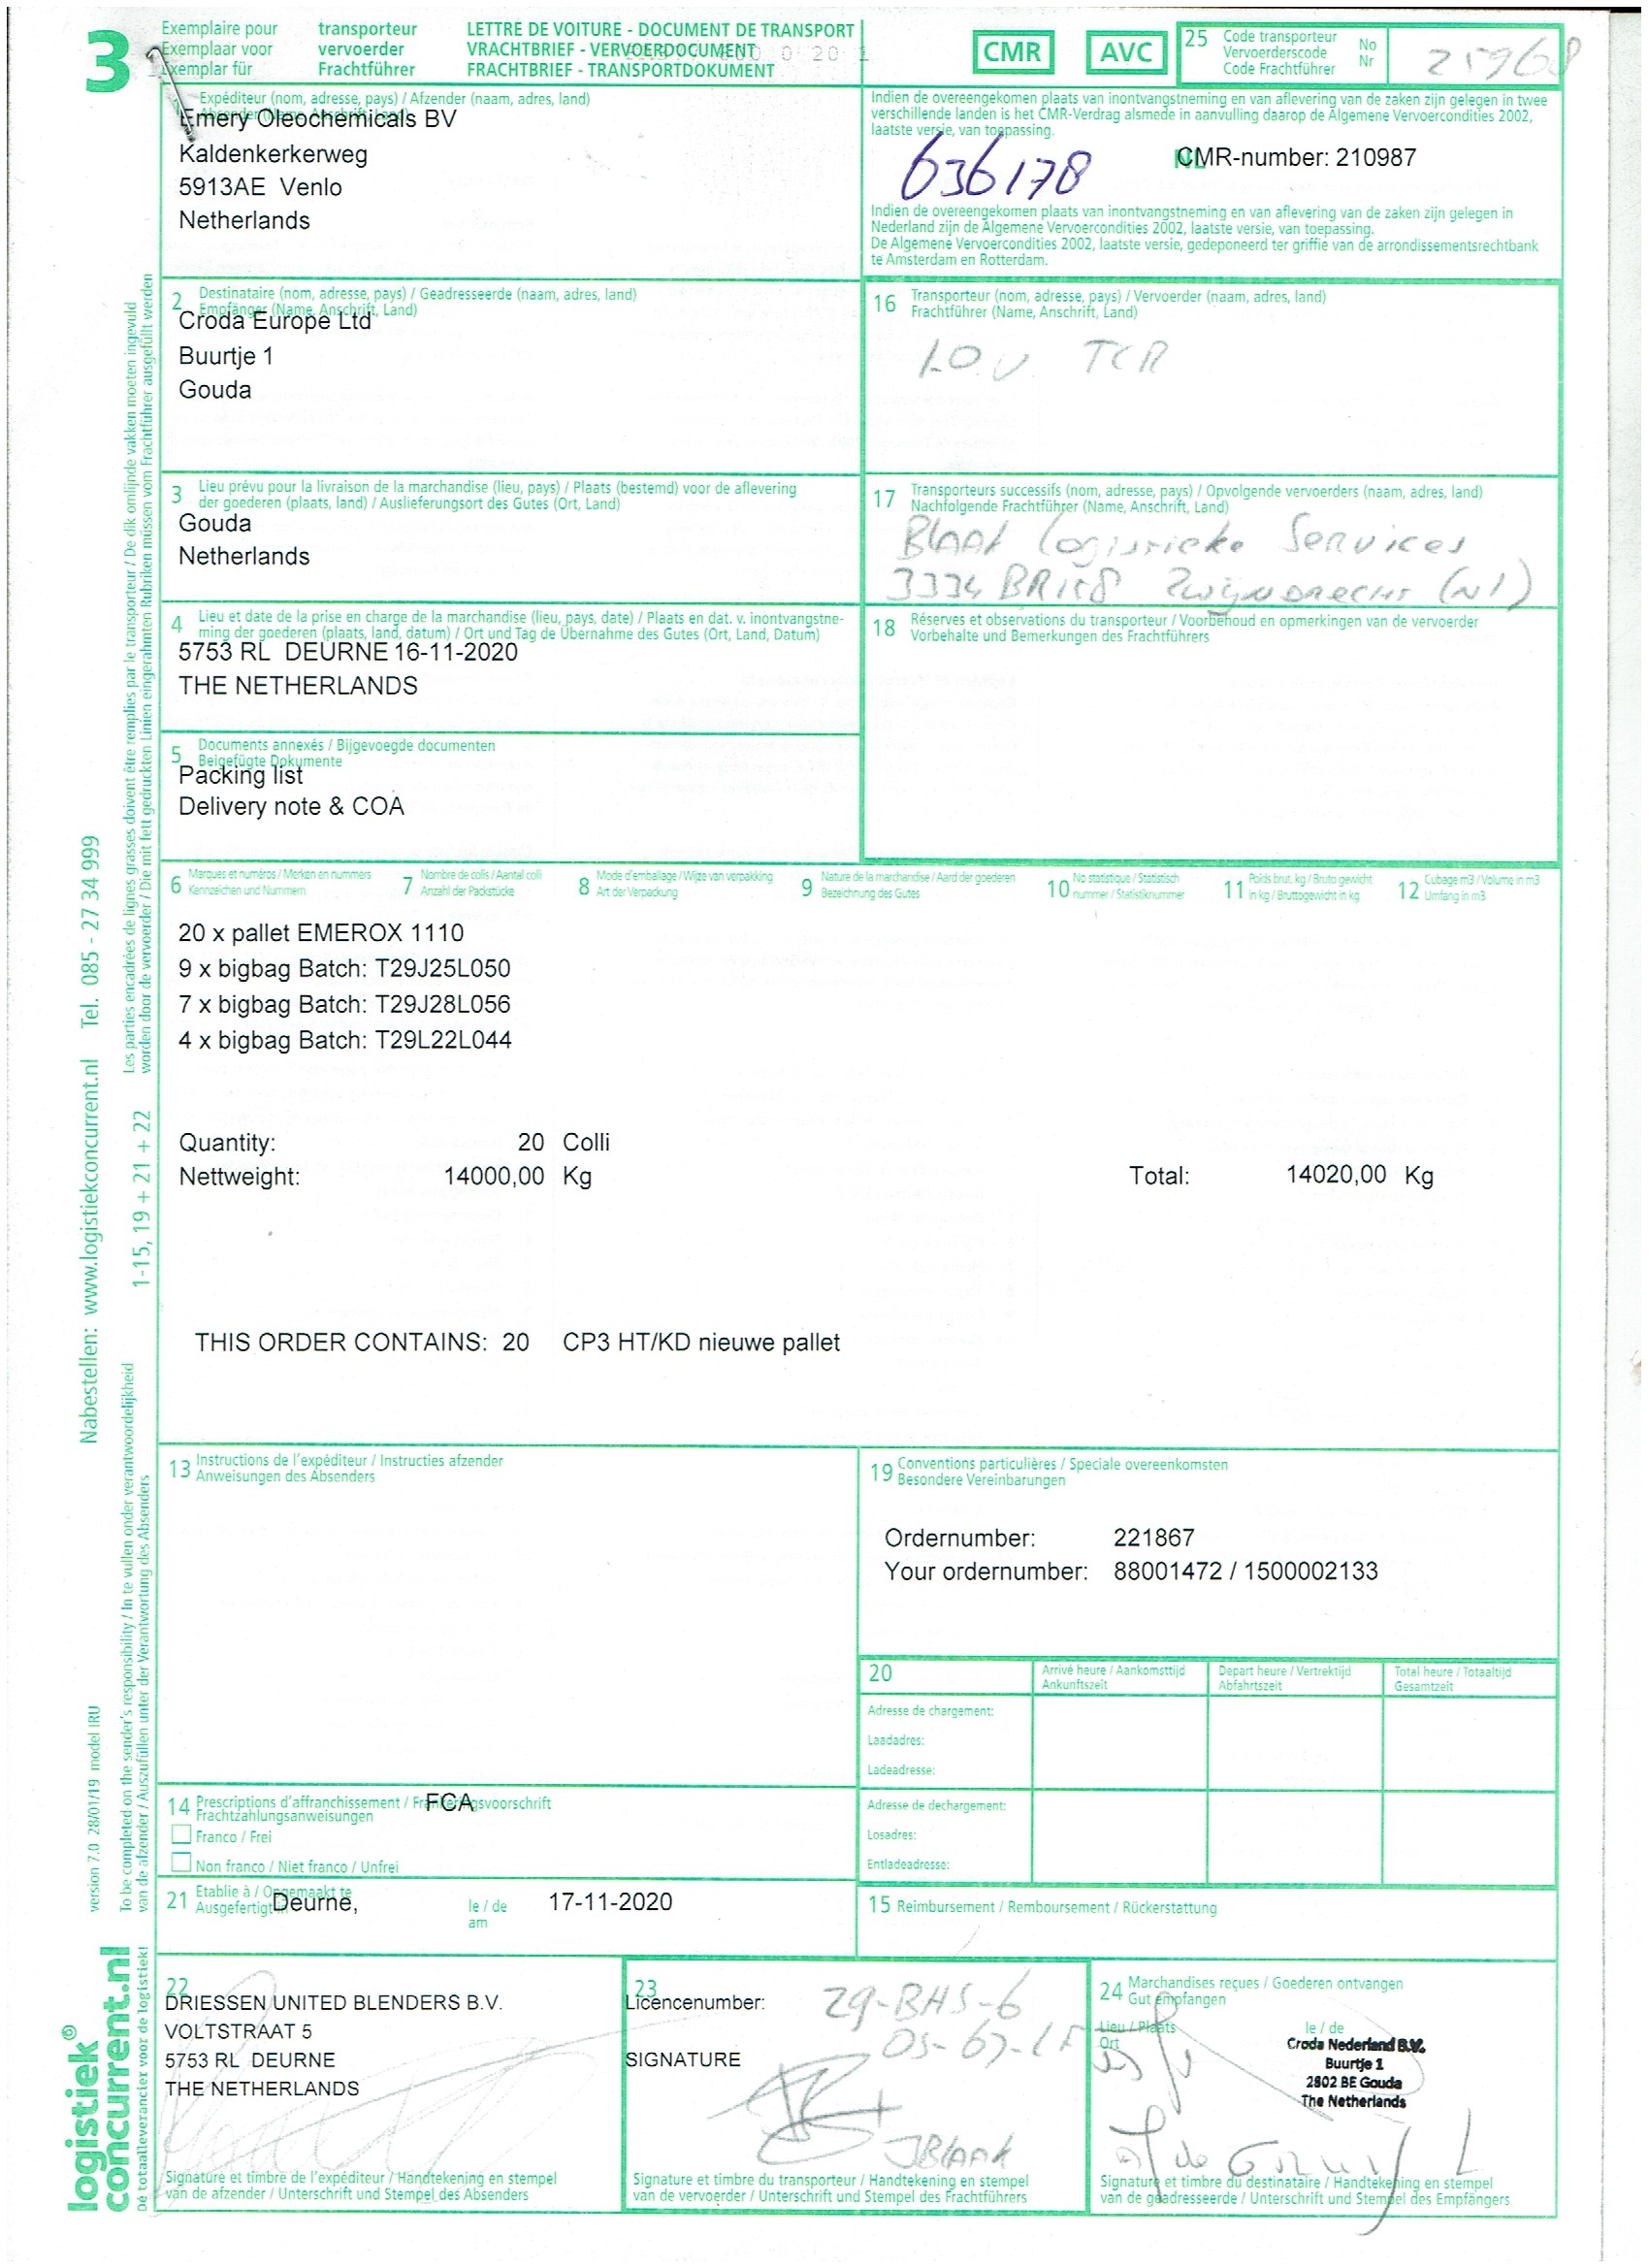 3
Exemplaire pour transporteur
Exemplaar voor vervoerder
Exemplar für Frachtführer
LETTRE DE VOITURE - DOCUMENT DE TRANSPORT
VRACHTBRIEF - VERVOERDOCUMENT
FRACHTBRIEF - TRANSPORTDOKUMENT
CMR
AVC
25 Code transporteur
Vervoerderscode
Code Frachtführer
No
Nr
25968
Expéditeur (nom, adresse, pays) / Afzender (naam, adres, land)
Absender (Name, Anschrift, Land)
Emery Oleochemicals BV
Kaldenkerkerweg
5913AE Venlo
Netherlands
Indien de overeengekomen plaats van inontvangstneming en van aflevering van de zaken zijn gelegen in twee
verschillende landen is het CMR-Verdrag alsmede in aanvulling daarop de Algemene Vervoercondities 2002,
laatste versie, van toepassing.
636178
NL
CMR-number: 210987
Indien de overeengekomen plaats van inontvangstneming en van aflevering van de zaken zijn gelegen in
Nederland zijn de Algemene Vervoercondities 2002, laatste versie, van toepassing.
De Algemene Vervoercondities 2002, laatste versie, gedeponeerd ter griffie van de arrondissementsrechtbank
te Amsterdam en Rotterdam.
2 Destinataire (nom, adresse, pays) / Geadresseerde (naam, adres, land)
Empfänger (Name, Anschrift, Land)
Croda Europe Ltd
Buurtje 1
Gouda
16 Transporteur (nom, adresse, pays) / Vervoerder (naam, adres, land)
Frachtführer (Name, Anschrift, Land)
I.O.V. TCR
3 Lieu prévu pour la livraison de la marchandise (lieu, pays) / Plaats (bestemd) voor de aflevering
der goederen (plaats, land) / Auslieferungsort des Gutes (Ort, Land)
Gouda
Netherlands
17 Transporteurs successifs (nom, adresse, pays) / Opvolgende vervoerders (naam, adres, land)
Nachfolgende Frachtführer (Name, Anschrift, Land)
Blaak Logistieke Services
3334 BR 158 Zwijndrecht (NL)
4 Lieu et date de la prise en charge de la marchandise (lieu, pays, date) / Plaats en dat. v. inontvangstne-
ming der goederen (plaats, land, datum) / Ort und Tag de Übernahme des Gutes (Ort, Land, Datum)
5753 RL DEURNE 16-11-2020
THE NETHERLANDS
18 Réserves et observations du transporteur / Voorbehoud en opmerkingen van de vervoerder
Vorbehalte und Bemerkungen des Frachtführers
5 Documents annexés / Bijgevoegde documenten
Beigefügte Dokumente
Packing list
Delivery note & COA
6 Marques et numéros / Merken en nummers
Kennzeichen und Nummern
7 Nombre de colis / Aantal colli
Anzahl der Packstücke
8 Mode d'emballage / Wijze van verpakking
Art der Verpackung
9 Nature de la marchandise / Aard der goederen
Bezeichnung des Gutes
10 No statistique / Statistisch
nummer / Statistiknummer
11 Poids brut, kg / Bruto gewicht
in kg / Bruttogewicht in kg
12 Cubage m3 / Volume in m3
Umfang in m3
20 x pallet EMEROX 1110
9 x bigbag Batch: T29J25L050
7 x bigbag Batch: T29J28L056
4 x bigbag Batch: T29L22L044
Quantity: 20 Colli
Nettweight: 14000,00 Kg Total: 14020,00 Kg
THIS ORDER CONTAINS: 20 CP3 HT/KD nieuwe pallet
13 Instructions de l'expéditeur / Instructies afzender
Anweisungen des Absenders
19 Conventions particulières / Speciale overeenkomsten
Besondere Vereinbarungen
Ordernumber: 221867
Your ordernumber: 88001472 / 1500002133
20
Arrivé heure / Aankomsttijd
Ankunftszeit
Depart heure / Vertrektijd
Abfahrtszeit
Total heure / Totaaltijd
Gesamtzeit
Adresse de chargement:
Laadadres:
Ladeadresse:
Adresse de dechargement:
Losadres:
Entladeadresse:
14 Prescriptions d'affranchissement / Frankeringsvoorschrift
Frachtzahlungsanweisungen
FCA
Franco / Frei
Non franco / Niet franco / Unfrei
21 Etablie à / Opgemaakt te
Ausgefertigt in
Deurne,
le / de
am
17-11-2020
15 Reimbursement / Remboursement / Rückerstattung
22
DRIESSEN UNITED BLENDERS B.V.
VOLTSTRAAT 5
5753 RL DEURNE
THE NETHERLANDS
Signature et timbre de l'expéditeur / Handtekening en stempel
van de afzender / Unterschrift und Stempel des Absenders
23
Licencenumber:
29-BHS-6
SIGNATURE
JBlaak
Signature et timbre du transporteur / Handtekening en stempel
van de vervoerder / Unterschrift und Stempel des Frachtführers
24 Marchandises reçues / Goederen ontvangen
Gut empfangen
Lieu / Plaats
Ort
le / de
Croda Nederland B.V.
Buurtje 1
2802 BE Gouda
The Netherlands
Signature et timbre du destinataire / Handtekening en stempel
van de geadresseerde / Unterschrift und Stempel des Empfängers
Les parties encadrées de lignes grasses doivent être remplies par le transporteur / De dik omlijnde vakken moeten ingevuld
worden door de vervoerder / Die mit fett gedruckten Linien eingerahmten Rubriken müssen vom Frachtführer ausgefüllt werden
Nabestellen: www.logistiekconcurrent.nl Tel. 085 - 27 34 999
1-15, 19 + 21 + 22
To be completed on the sender's responsibility / In te vullen onder verantwoordelijkheid
van de afzender / Auszufüllen unter der Verantwortung des Absenders
version 7.0 28/01/19 model IRU
logistiek®
concurrent.nl
Dé totaalleverancier voor de logistiek!